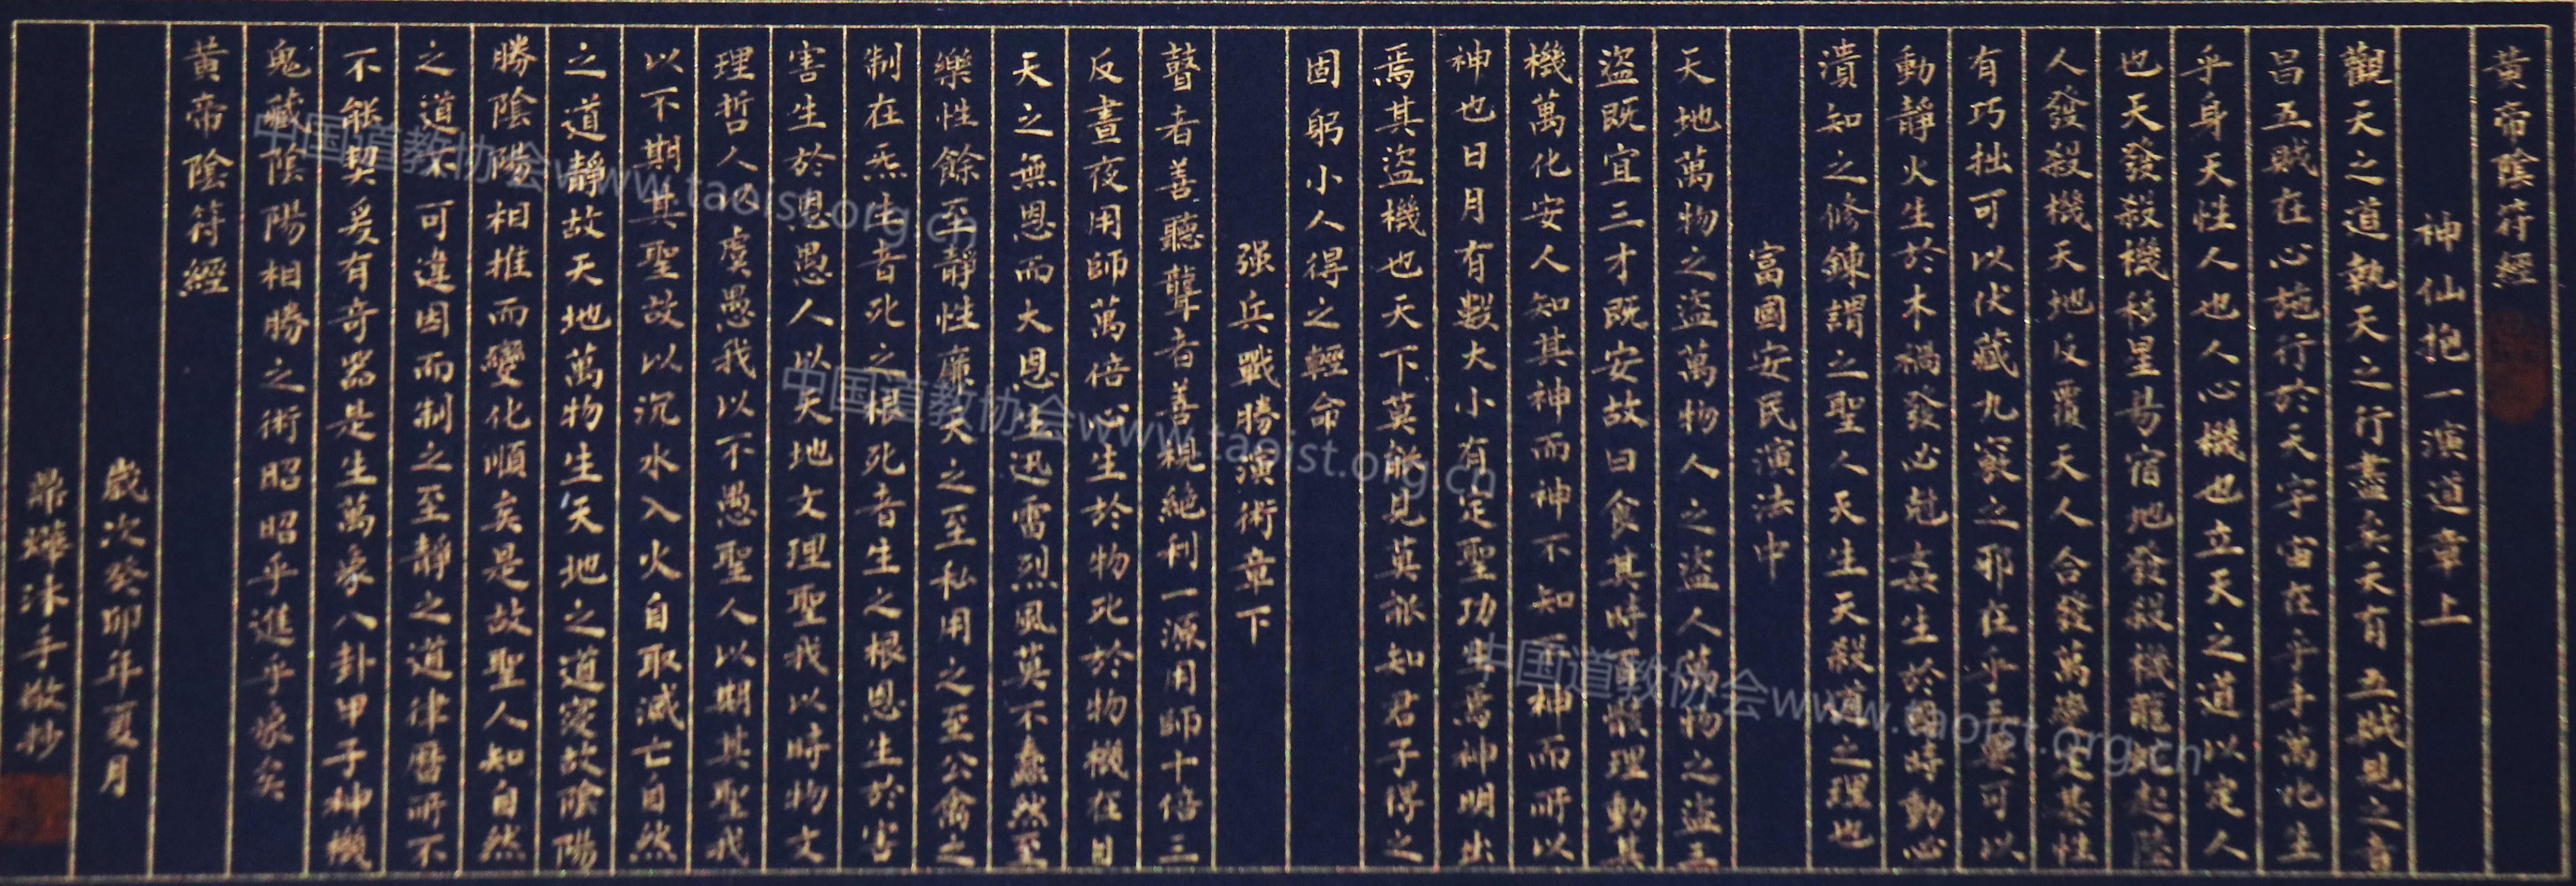 黃帝陰符經
神仙抱一演道章上
觀天之道執天之行盡矣天有五賊見之者
昌五賊在心施行於天宇宙在乎手萬化生
乎身天性人也人心機也立天之道以定人
也天發殺機移星易宿地發殺機龍蛇起陸
人發殺機天地反覆天人合發萬變定基性
有巧拙可以伏藏九竅之邪在乎三要可以
動靜火生於木禍發必尅姦生於國時動必
潰知之修鍊謂之聖人天生天殺道之理也
富國安民演法中
天地萬物之盜萬物人之盜人萬物之盜三
盜既宜三才既安故曰食其時百骸理動其
機萬化安人知其神而神不知不神而所以
神也日月有數大小有定聖功生焉神明出
焉其盜機也天下莫能見莫能知君子得之
固躬小人得之輕命
强兵戰勝演術章下
瞽者善聽聾者善視絶利一源用師十倍三
反晝夜用師萬倍心生於物死於物機在目
天之無恩而大恩生迅雷烈風莫不蠢然至
樂性餘至靜性廉天之至私用之至公禽之
制在炁生者死之根死者生之根恩生於害
害生於恩愚人以天地文理聖我以時物文
理哲人以虞愚我以不愚聖人以期其聖我
以不期其聖故以沉水入火自取滅亡自然
之道靜故天地萬物生天地之道浸故陰陽
勝陰陽相推而變化順矣是故聖人知自然
之道不可違因而制之至靜之道律曆所不
不能契爰有奇器是生萬象八卦甲子神機
鬼藏陰陽相勝之術昭昭乎進乎象矣
黃帝陰符經
歲次癸卯年夏月
鼎燁沐手敬抄
中国道教协会www.taoist.org.cn
中国道教协会www.taoist.org.cn
中国道教协会www.taoist.org.cn